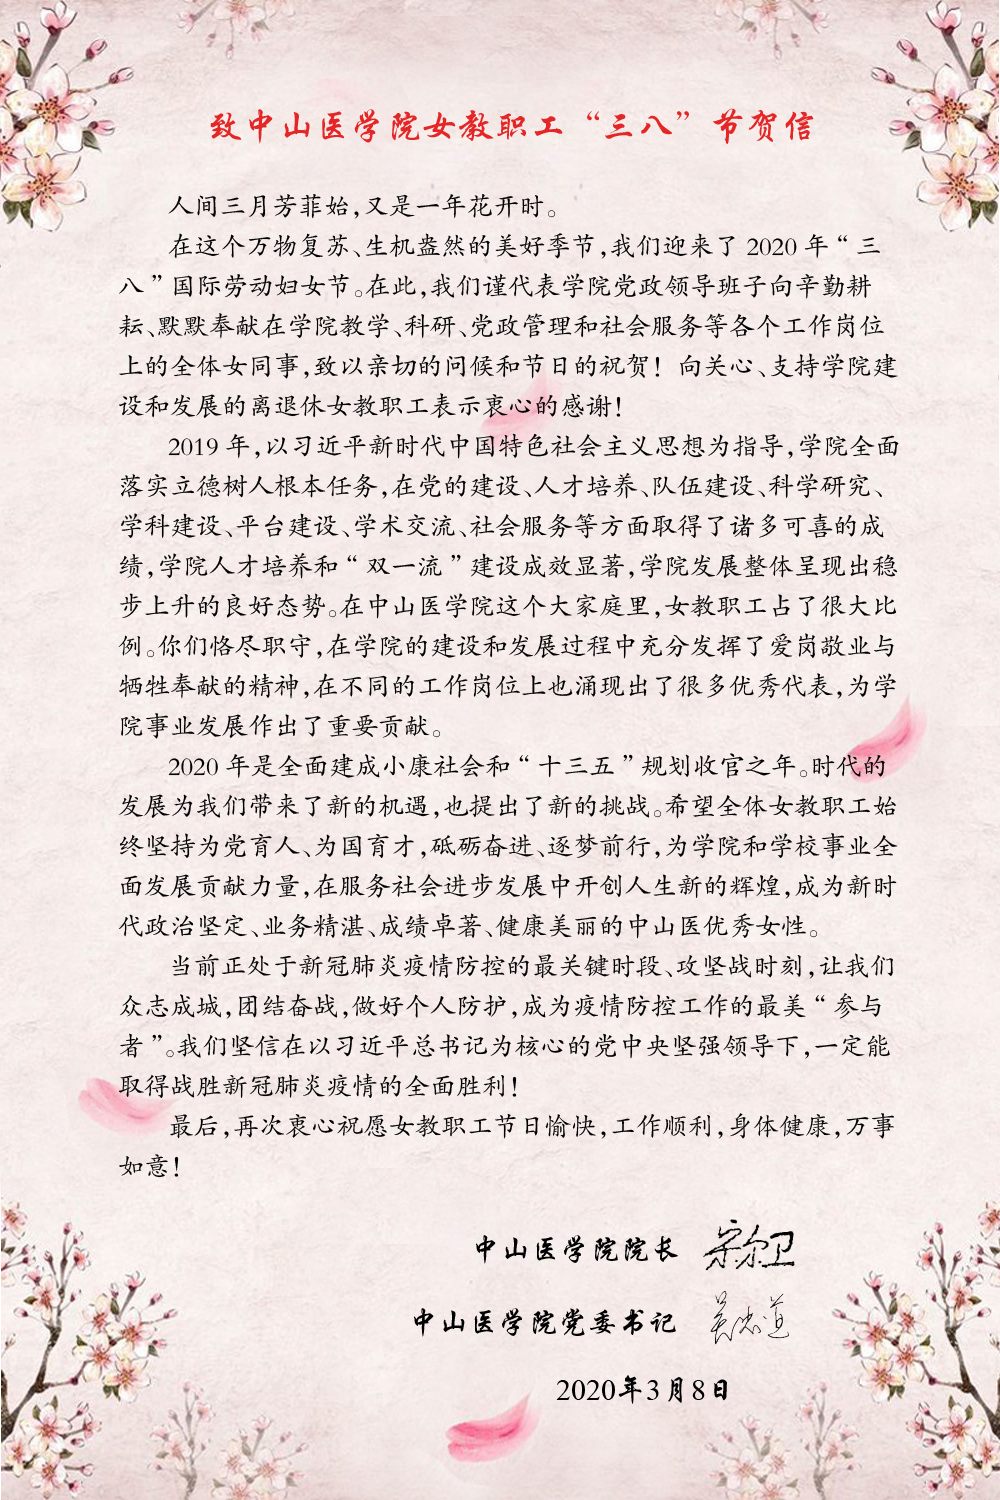 致中山医学院女教职工“三八”节贺信
人间三月芳菲始，又是一年花开时。
在这个万物复苏、生机盎然的美好季节，我们迎来了 2020 年“三
八”国际劳动妇女节。在此，我们谨代表学院党政领导班子向辛勤耕
耘、默默奉献在学院教学、科研、党政管理和社会服务等各个工作岗位
上的全体女同事，致以亲切的问候和节日的祝贺！向关心、支持学院建
设和发展的离退休女教职工表示衷心的感谢！
2019 年，以习近平新时代中国特色社会主义思想为指导，学院全面
落实立德树人根本任务，在党的建设、人才培养、队伍建设、科学研究、
学科建设、平台建设、学术交流、社会服务等方面取得了诸多可喜的成
绩，学院人才培养和“双一流”建设成效显著，学院发展整体呈现出稳
步上升的良好态势。在中山医学院这个大家庭里，女教职工占了很大比
例。你们恪尽职守，在学院的建设和发展过程中充分发挥了爱岗敬业与
牺牲奉献的精神，在不同的工作岗位上也涌现出了很多优秀代表，为学
院事业发展作出了重要贡献。
2020 年是全面建成小康社会和“十三五”规划收官之年。时代的
发展为我们带来了新的机遇，也提出了新的挑战。希望全体女教职工始
终坚持为党育人、为国育才，砥砺奋进、逐梦前行，为学院和学校事业全
面发展贡献力量，在服务社会进步发展中开创人生新的辉煌，成为新时
代政治坚定、业务精湛、成绩卓著、健康美丽的中山医优秀女性。
当前正处于新冠肺炎疫情防控的最关键时段、攻坚战时刻，让我们
众志成城，团结奋战，做好个人防护，成为疫情防控工作的最美“参与
者”。我们坚信在以习近平总书记为核心的党中央坚强领导下，一定能
取得战胜新冠肺炎疫情的全面胜利！
最后，再次衷心祝愿女教职工节日愉快，工作顺利，身体健康，万事
如意！
中山医学院院长 宋尔卫
中山医学院党委书记 吴忠道
2020年3月8日